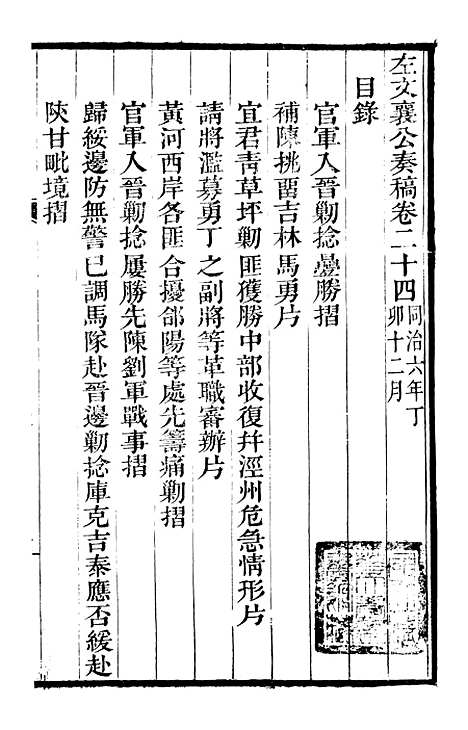 左文襄公奏稿卷二十四同治六年丁卯十二月
目錄
官軍入晉勦捻疊勝摺
補陳挑畱吉林馬勇片
宜君靑草坪勦匪獲勝中部收復幷涇州危急情形片
請將濫募勇丁之副將等革職審辦片
黃河西岸各匪合擾郃陽等處先籌痛勦摺
官軍入晉勦捻屢勝先陳劉軍戰事摺
歸綏邊防無警已調馬隊赴晉邊勦捻庫克吉泰應否緩赴
陝甘毗境摺